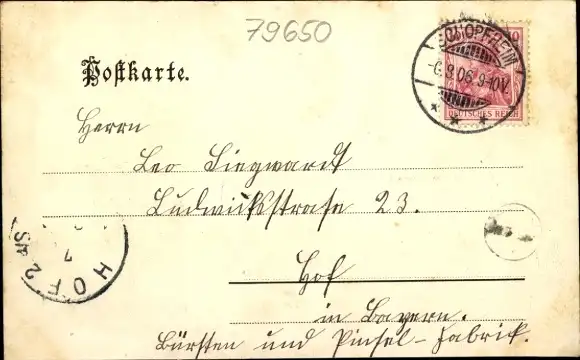 79650
SCHOPFHEIM
-6.8.06.9-10V.
DEUTSCHES REICH
Postkarte.
Herrn
Leo Siegwardt
Ludwickstrasse 23.
HOF 2
7
Hof
in Bayern.
Bürsten und Pinsel-Fabrik.